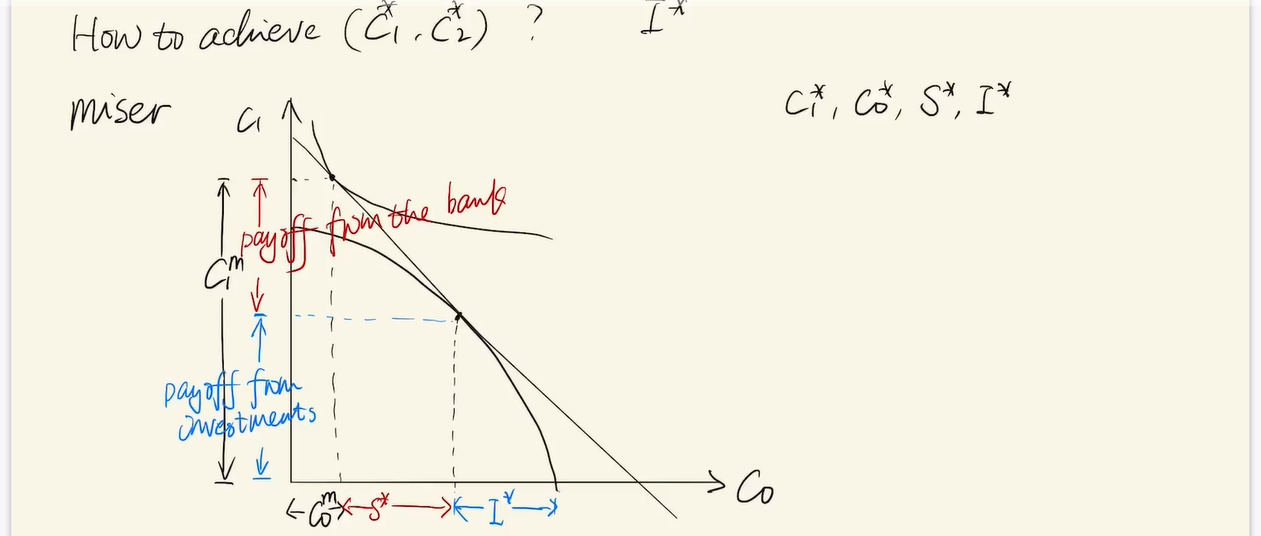 How to achieve (C₁*, C₂*) ? I*
miser
C₁*, C₀*, S*, I*
C₁
payoff from the bank
C₁ᵐ
payoff from
investments
C₀ᵐ S* I*
C₀